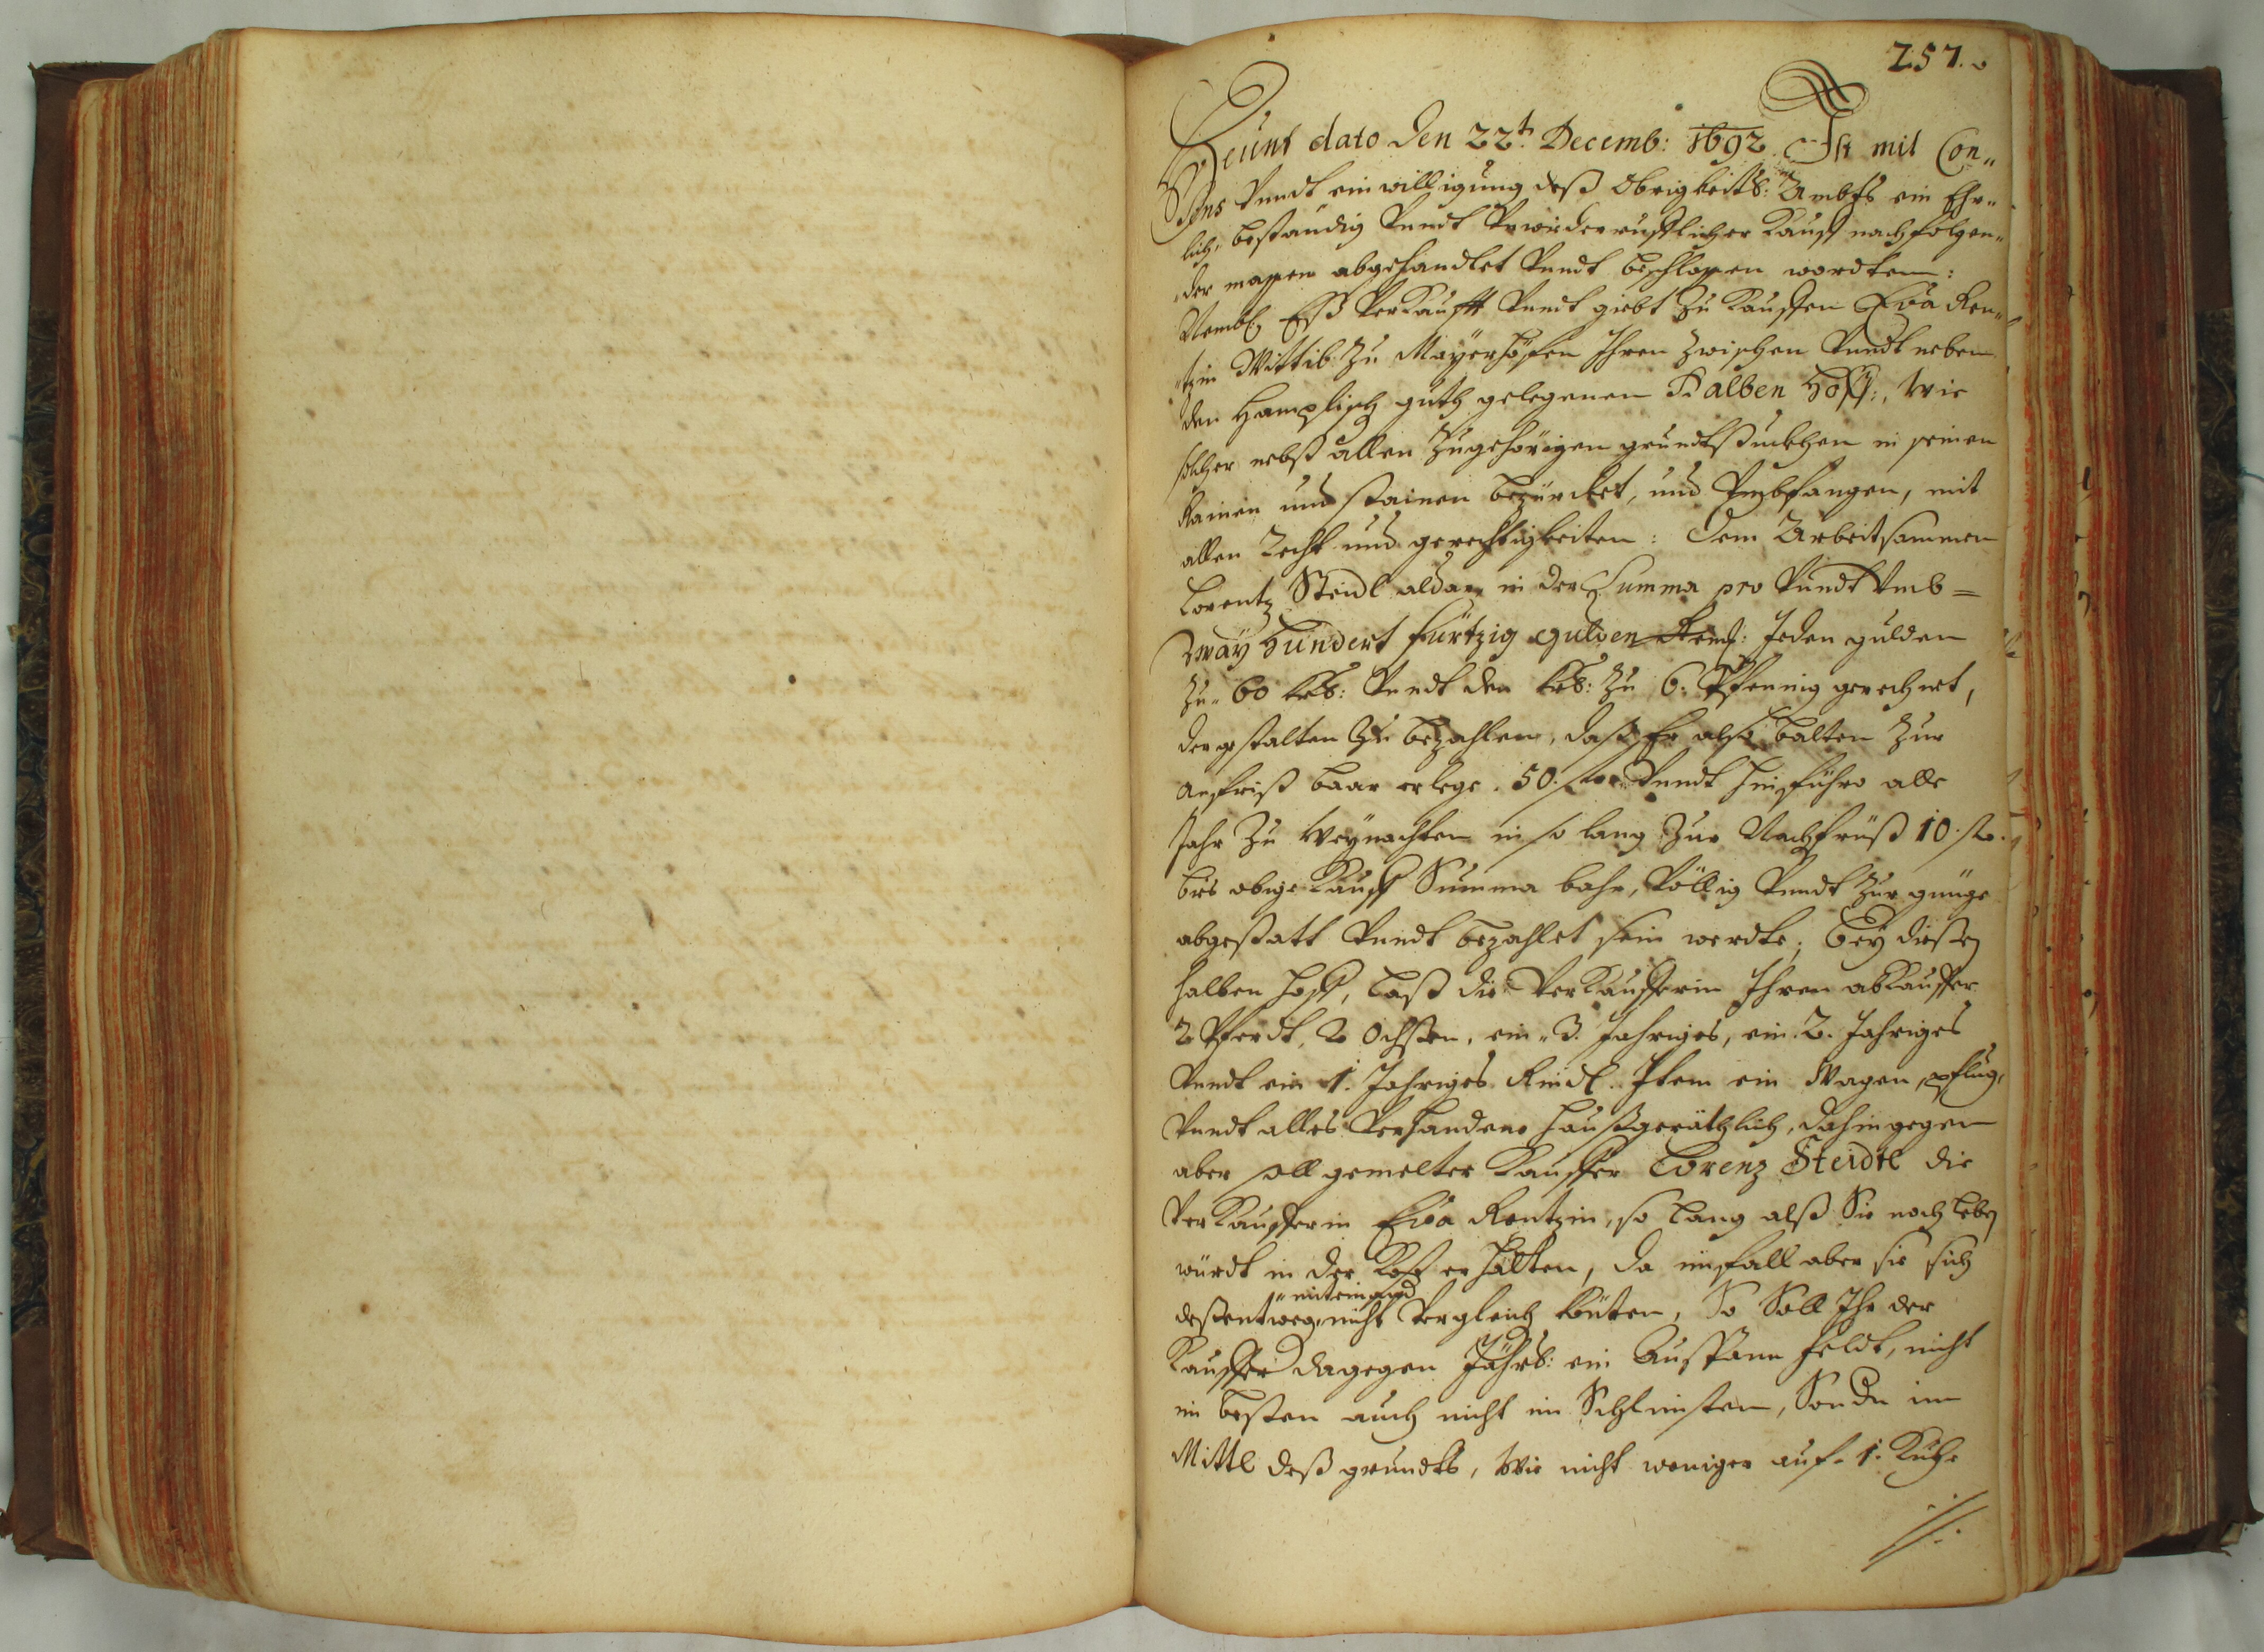 257.
Heünt dato den 22t. Decemb: 1692. Ist mit Con„
Sens Vnndt einwilligung deß Obrigkeits: Ambts ein Ehr„
lich„ beständig Vnndt Vnwiderrufflicher Kauff nachfolgen„
„der massen abgehandlet Vnndt beschlossen wordten:
Nembl: Eß Verkaufft Vnndt giebt zu Kauffen Eva Ren„
„tzin Wittib zu Mayerhöfen Ihren zwischen Vnndt neben
den gutg gelegenen Halben Hoff:, wie
solcher nebst allen zugehörigen grundtstuckhen in seinen
Rainen und stainen bezürcket, und Vmbfangen, mit
allen Recht und gerechtigkeiten: dem Arbeitsammen
Lorentz Steidl aldar in der Summa pro Vnndt Vmb =
Zway Hundert fürtzig gulden Reinl: Jeden gulden
zu„ 60 krs: Vnndt den krs: zu 6: Pfennig gerechnet,
dergestalten zu bezahlen, daß Er also balten zur
anfrist baar erlege . 50. fl. Vnndt hinführo alle
Jahr zu Weynachten in so lang zur Nachfrist 10. fl.
bis obige Kauff Summa bahr, Völlig Vnndt zur gnüge
abgestatt Vnndt bezahlet sein werdte; Bey diesen
halben Hoff, Last die Verkaufferin Ihren abkauffer
2 Pferdt, 2 Ochsen, ein„ 3. Jahriges, ein. 2. Jahriges
Vnndt ein 1. Jahriges Rindl. Item ein Wagen, pflug,
Vnndt alles Verhandene haußgeräthlich, dahingegen
aber soll gemelter Kauffer Lorenz Steidtl die
Verkaufferin Eva Rentzin, so lang alß Sie noch leben
würdt in der Kost erhalten, da imfall aber sie sich
dessentweg. nicht „mit einand Vergleich könten, So Soll Ihr der
Kauffer dagegen Jährl: ein Feldt, nicht
im besten auch nicht im Schlimsten, Sondn im
Mittl deß grundts, Wie nicht weniger auf. 1. Kuhe
./.